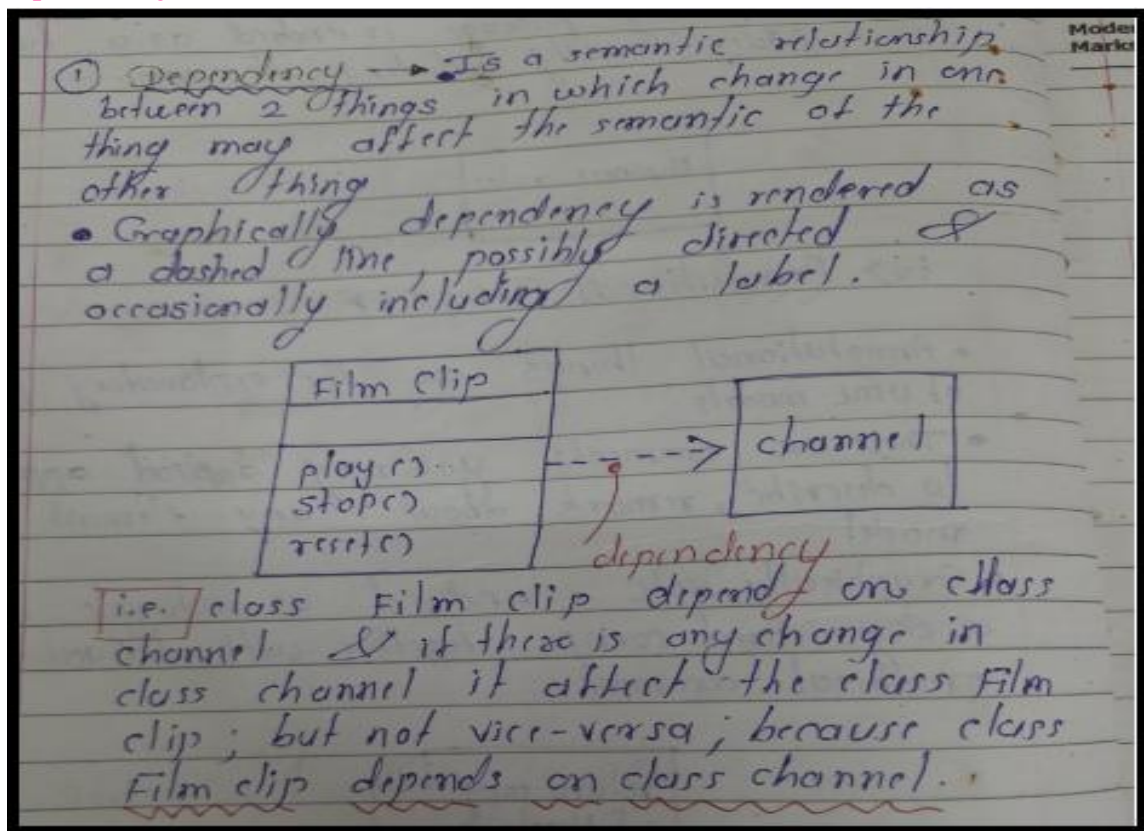 Model
Marks
① Dependency → Is a semantic relationship
between 2 things in which change in one
thing may affect the semantic of the
other thing
• Graphically dependency is rendered as
a dashed line, possibly directed &
occasionally including a label.
Film Clip
play()
stop()
reset()
channel
dependency
i.e. class Film clip depend on class
channel & if there is any change in
class channel it affect the class Film
clip; but not vice-versa; because class
Film clip depends on class channel.